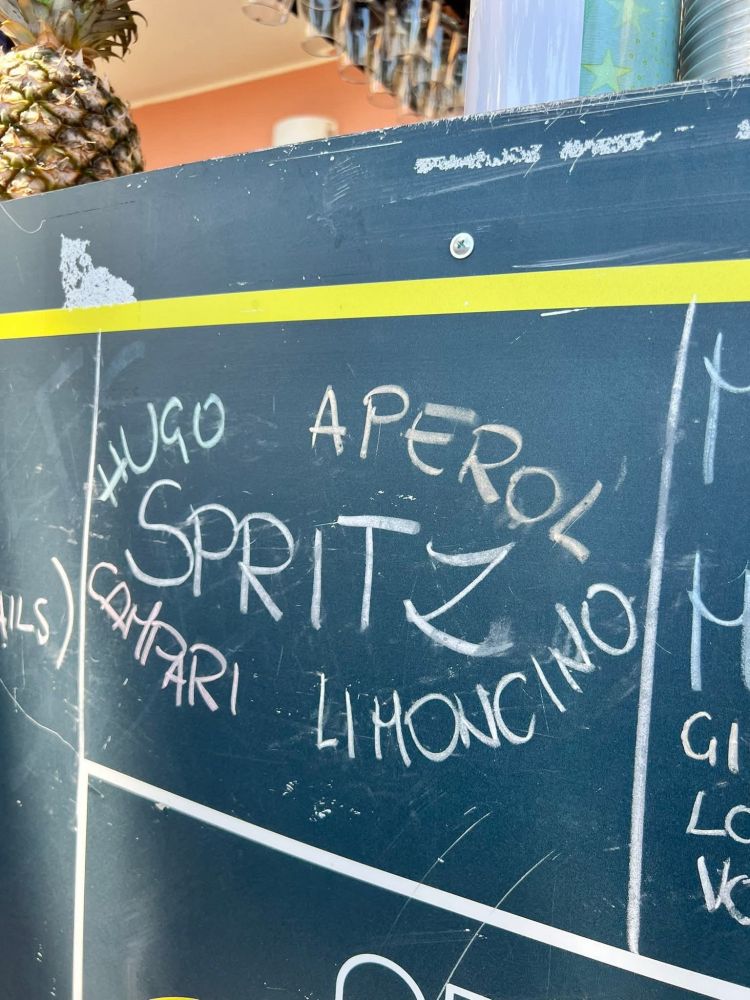 HUGO APEROL
SPRITZ
CAMPARI LIMONCINO
AILS)
GI
LO
VO